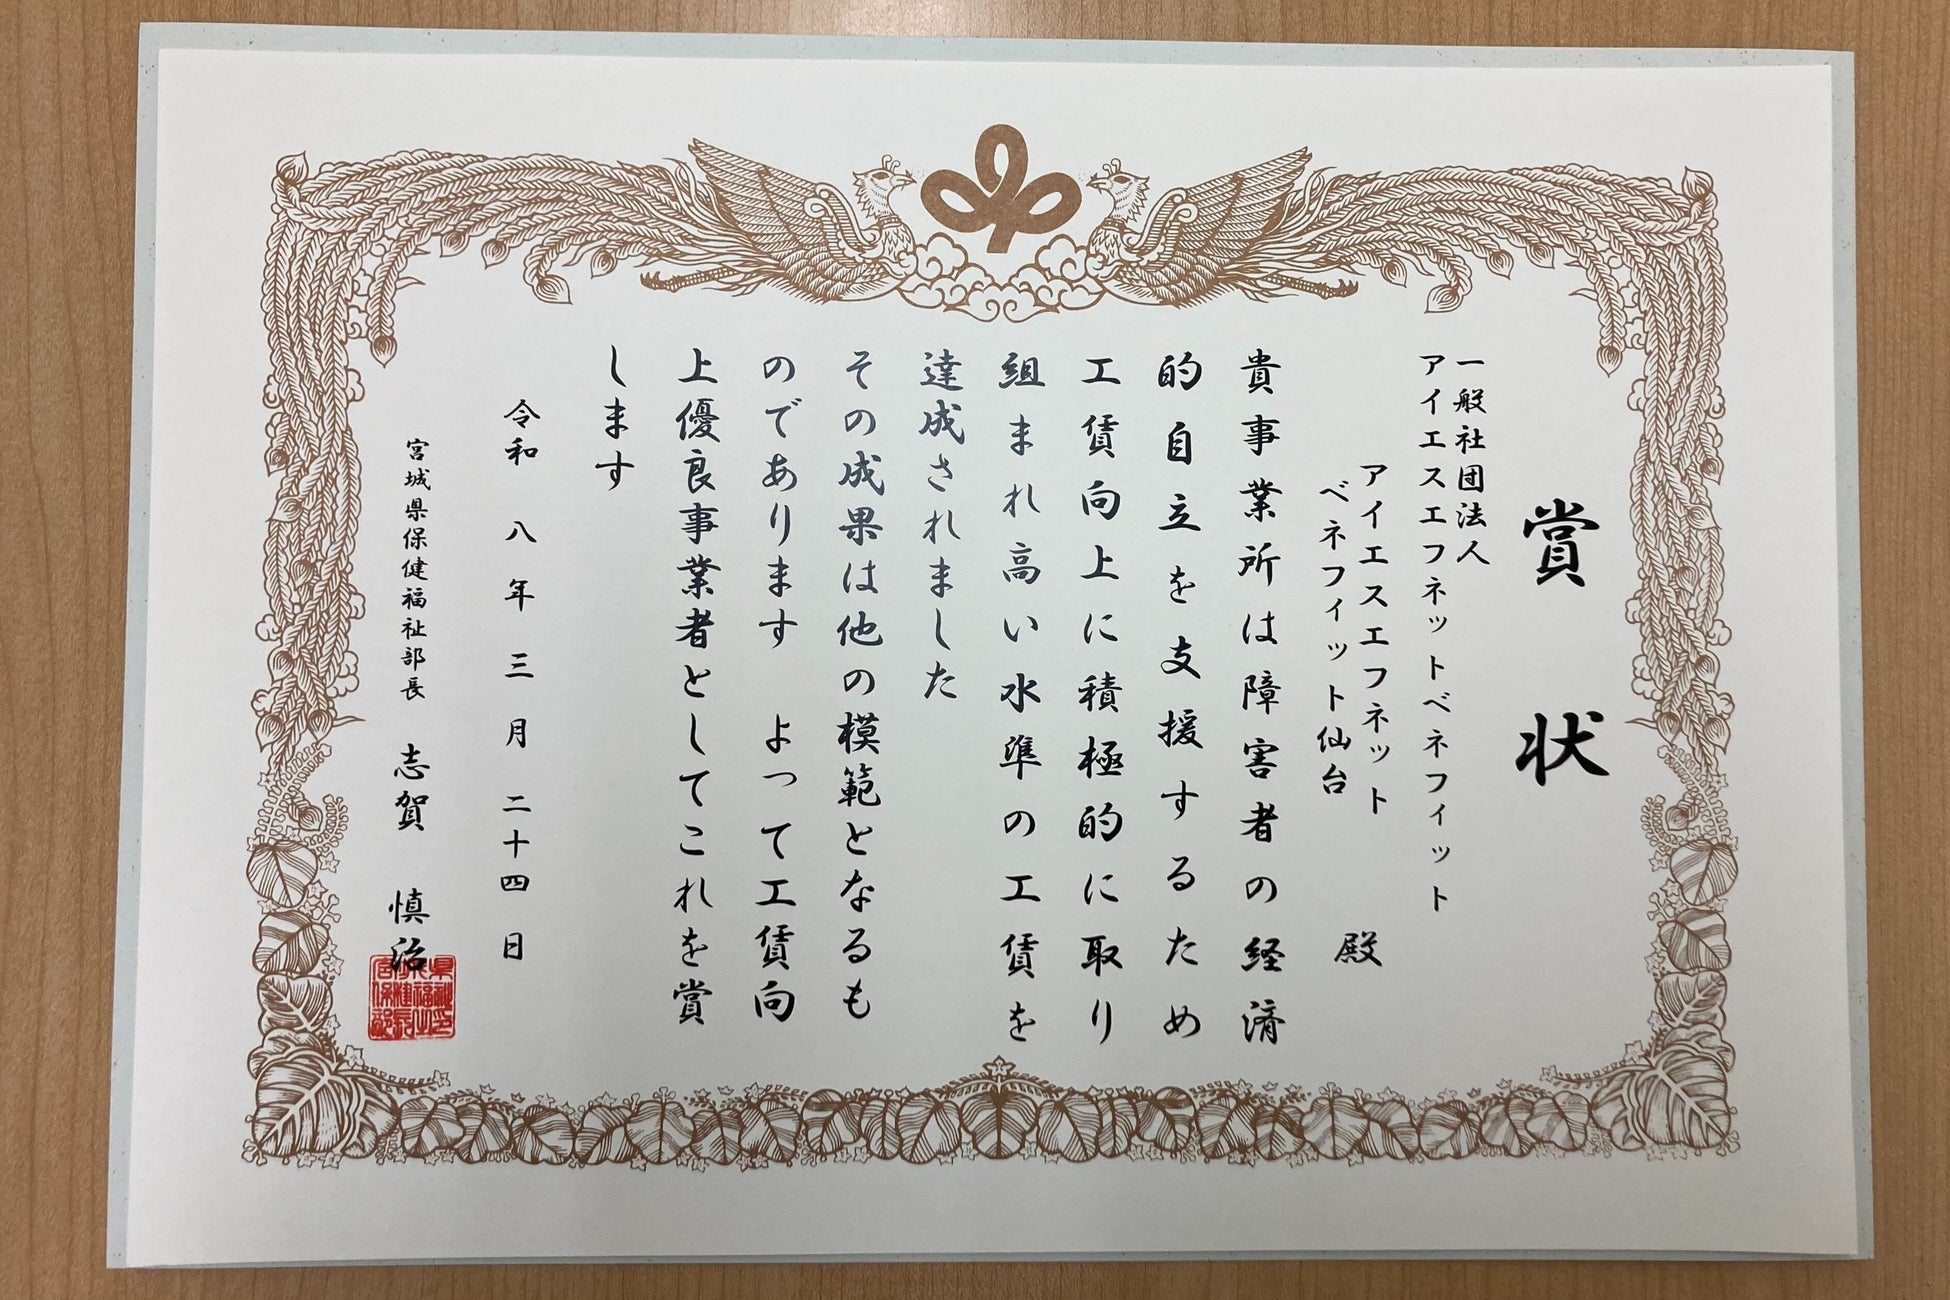 賞状
一般社団法人
アイエスエフネットベネフィット
アイエスエフネット
ベネフィット仙台
殿
貴事業所は障害者の経済
的自立を支援するため
工賃向上に積極的に取り
組まれ高い水準の工賃を
達成されました
その成果は他の模範となるも
のであります よって工賃向
上優良事業者としてこれを賞
します
令和 八年 三月 二十四日
宮城県保健福祉部長 志賀 慎治